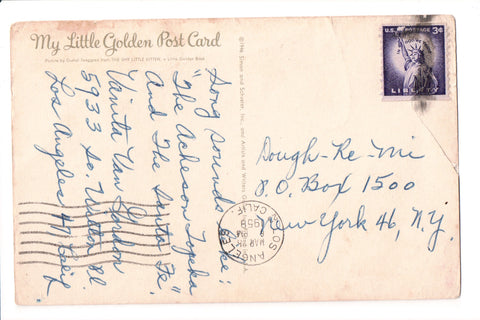 My Little Golden Post Card
Picture by Gustaf Tenggren from THE SHY LITTLE KITTEN, a Little Golden Book
Song sounds like:
"The Acheson Topeka
And The Santa Fe"
Vanita Van Gordon
5933 So.
Los Angeles 47 Calif.
© 1946 Simon and Schuster, Inc., and Artists and Writers
U.S. POSTAGE 3¢
LIBERTY
LOS ANGELES
CALIF.
MAR 25
PM
1958
Dough-Re-Mi
P.O. Box 1500
New York 46, N.Y.